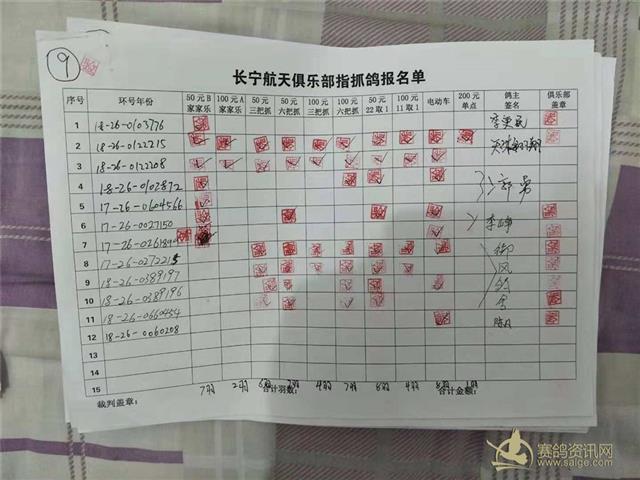 9
长宁航天俱乐部指抓鸽报名单
序号 环号年份 50元B家家乐 100元A家家乐 50元三把抓 50元六把抓 100元三把抓 100元六把抓 50元22取1 100元11取1 电动车 200元单点 鸽主签名 俱乐部盖章
1 18-26-0103776
2 18-26-0122215
3 18-26-0122208
4 18-26-0102872
5 17-26-0604566
6 17-26-0027150
7 17-26-0261890
8 17-26-0272215
9 18-26-0389197
10 18-26-0389196
11 18-26-0660454
12 18-26-0060208
13
14
15
7羽 2羽 4羽 7羽 8羽 4羽 8羽 1羽
裁判盖章： 合计羽数： 合计金额：
赛鸽资讯网
www.saige.com